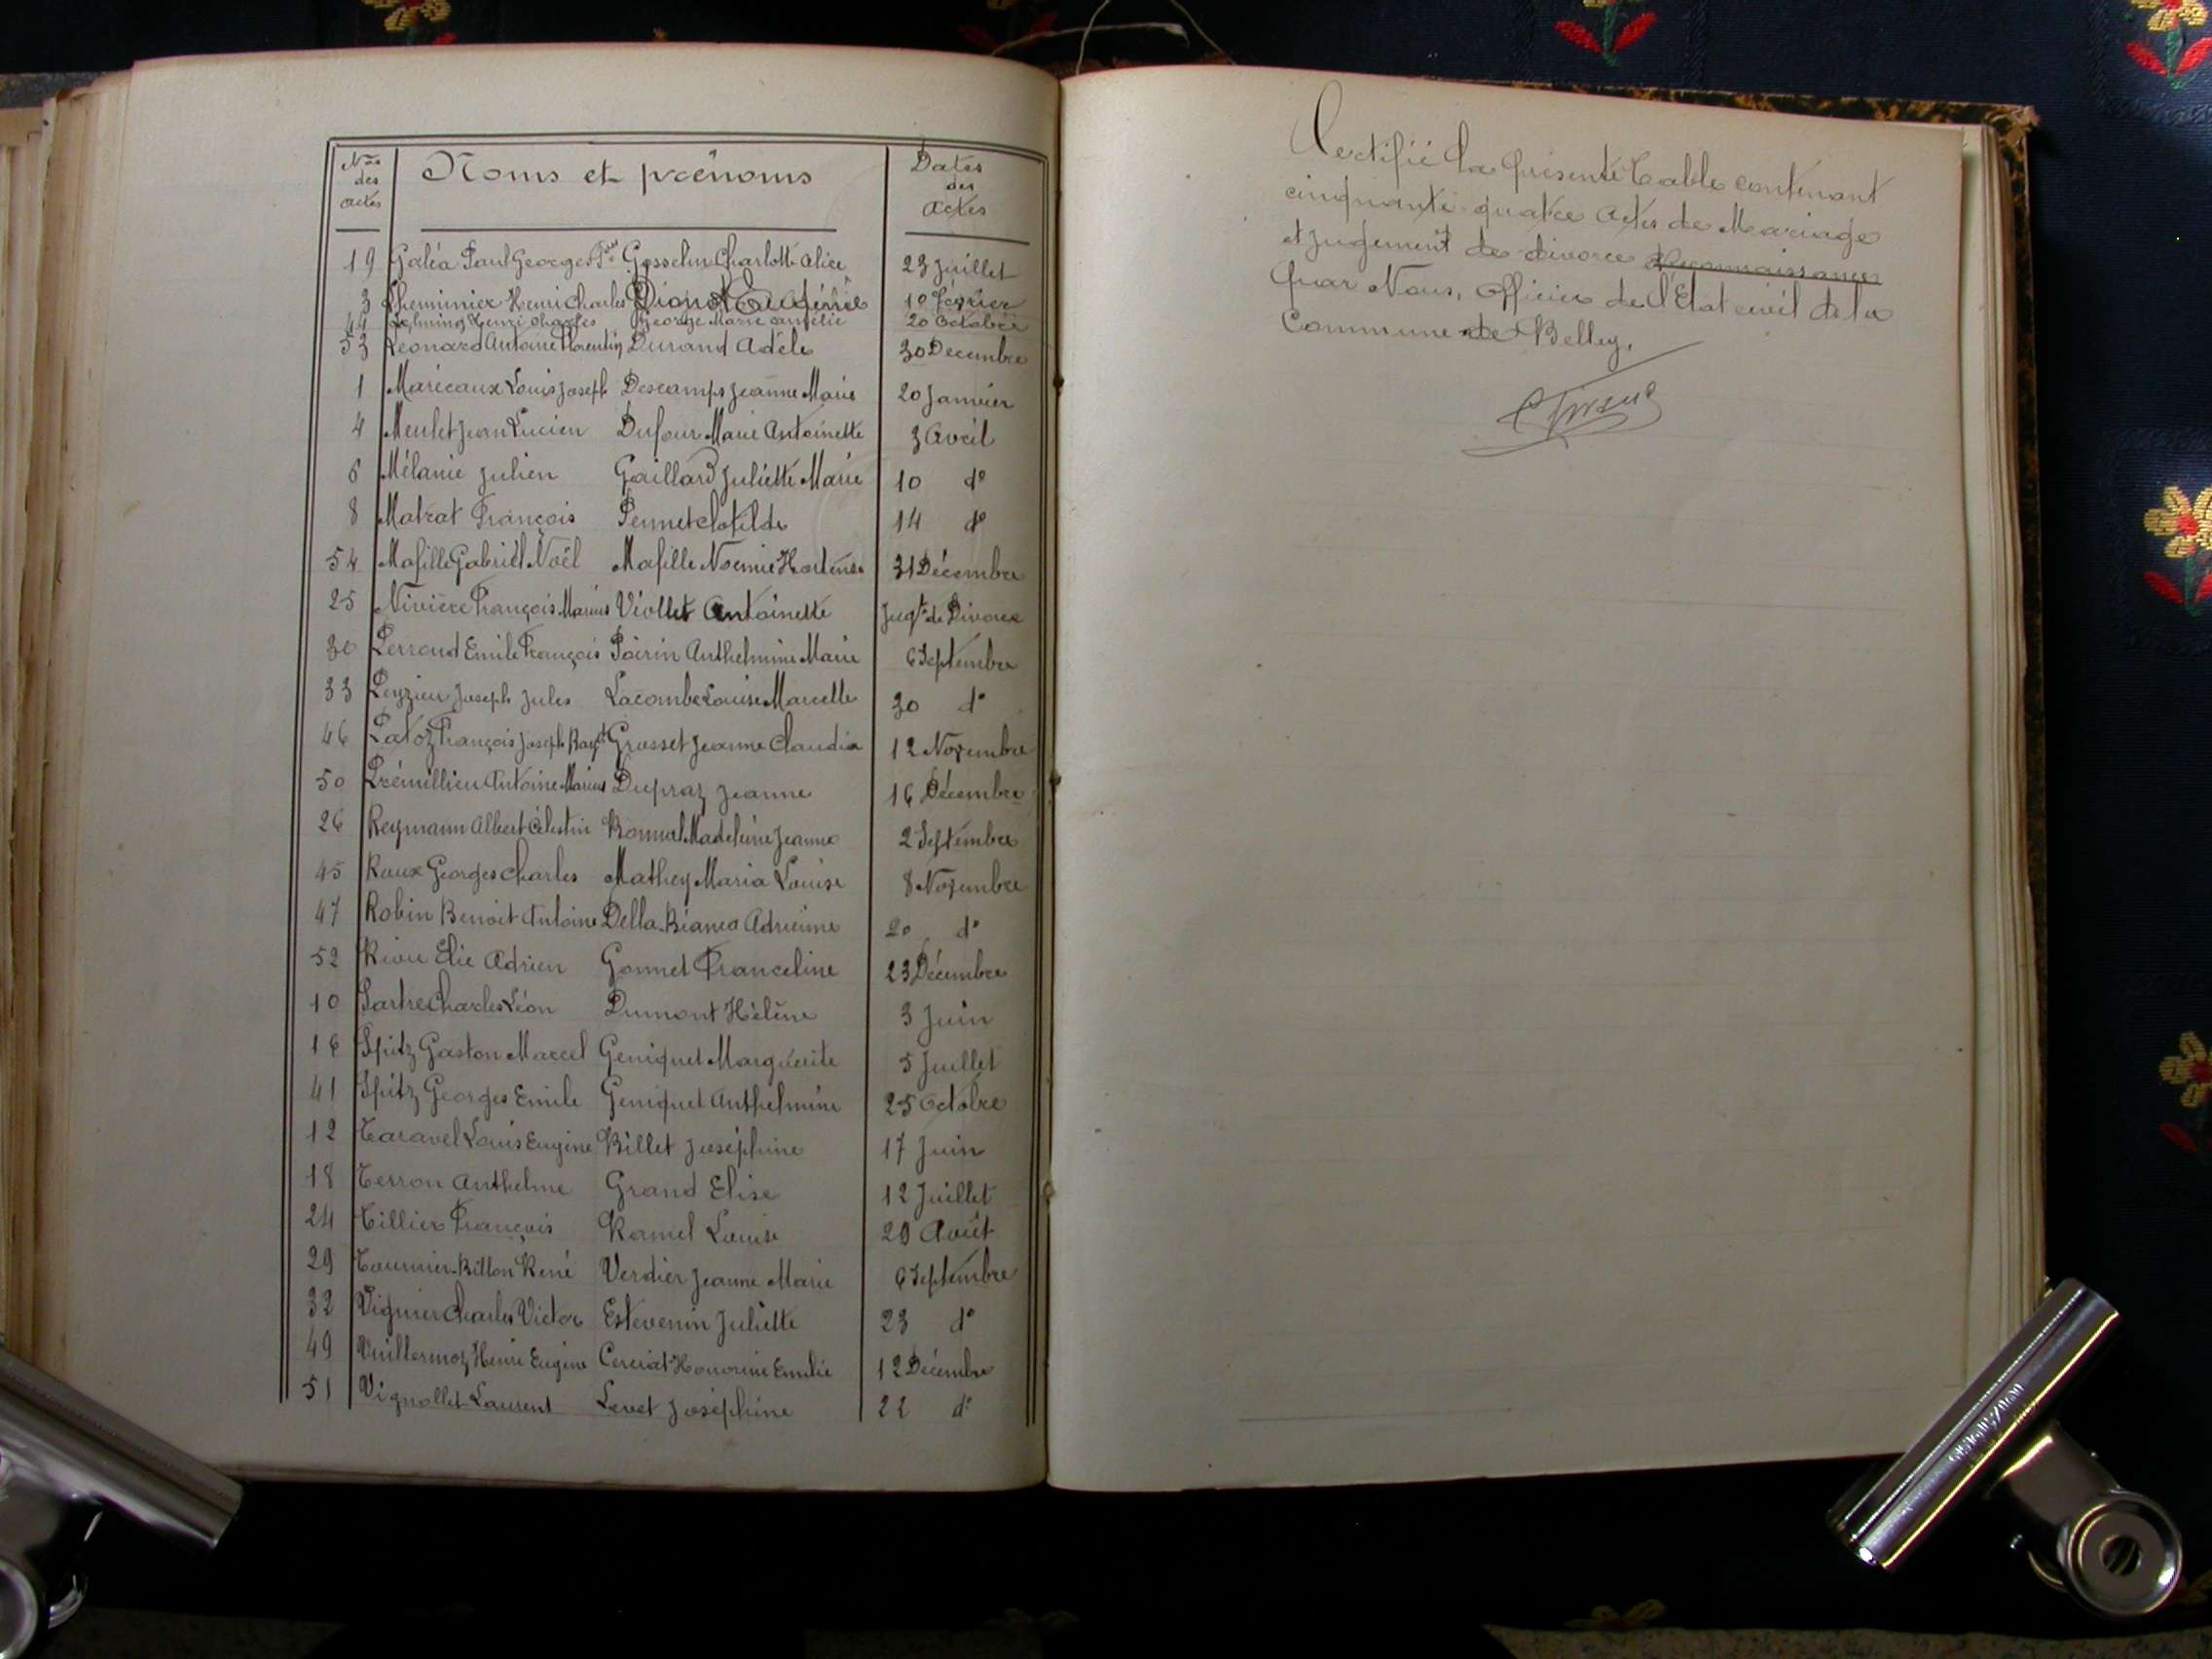 Nos des actes Noms et prénoms Dates des Actes
19 Galéa Paul Georges Gosselin Charlotte Alice 23 Juillet
3 Lheminier Henri Charles Dionot Eugénie 10 février
44 Henri Charles George Marie 20 Octobre
53 Léonard Antoine Florentin Durand Adèle 30 Décembre
1 Marécaux Louis Joseph Descamps Jeanne Marie 20 Janvier
4 Meulet Jean Lucien Dufour Marie Antoinette 3 Avril
6 Mélanie Julien Gaillard Juliette Marie 10 do
8 Matrat François Pennet Clotilde 14 do
54 Mafille Gabriel Noël Mafille Noemie Hortense 31 Décembre
25 Nivière François Marius Viollet Antoinette Jugt de Divorce
30 Perroud Emile François Poirin Anthelmine Marie 6 Septembre
33 Peyzieu Joseph Jules Lacombe Louise Marcelle 30 do
46 Patoz François Joseph Grosset Jeanne Claudia 12 Novembre
50 Prémillieu Antoine Marius Dupraz Jeanne 16 Décembre
26 Reymann Albert Célestin Madeleine Jeanne 2 Septembre
45 Roux Georges Charles Mathey Maria Louise 8 Novembre
47 Robin Benoit Antoine Della-Bianca Adrienne 20 do
52 Elie Adrien Gonnet Franceline 23 Décembre
10 Sartre Charles Léon Dumont Hélène 3 Juin
16 Spitz Gaston Marcel Geniquet Marguerite 5 Juillet
41 Spitz Georges Emile Geniquet Anthelmine 25 Octobre
12 Taravel Louis Eugène Billet Joséphine 17 Juin
18 Terron Anthelme Grand Elise 12 Juillet
24 Tillier François Ramel Louise 29 Août
29 Tournier-Billon René Verdier Jeanne Marie 6 Septembre
32 Viguier Charles Victor Estevenin Juliette 23 do
49 Vuillermoz Henri Eugène Cerciat Honorine Emilie 12 Décembre
51 Vignollet Laurent Levet Joséphine 22 do
Certifié la présente Table contenant
cinquante-quatre actes de Mariage
et jugement de divorce Reconnaissances
par Nous, Officier de l'Etat civil de la
Commune de Belley.